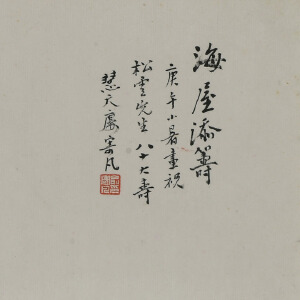 海屋添籌
庚午小暑畫祝
松雲先生八十大壽
慧天廬寄凡